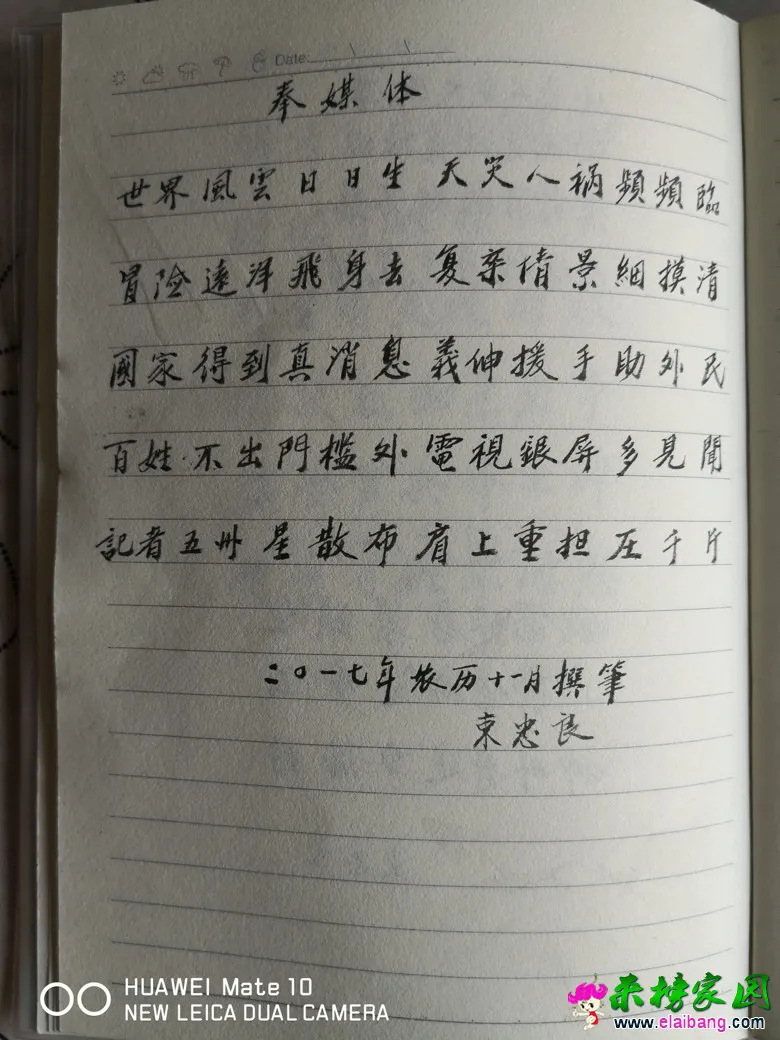 Date:
奉媒体
世界風雲日日生 天灾人祸頻頻臨
冒险遠洋飛身去 复杂情景細摸清
國家得到真消息 義伸援手助外民
百姓不出門槛外 電視銀屏多見聞
記者五州星散布 肩上重担压千斤
二〇一七年农历十一月撰筆
束忠良
HUAWEI Mate 10
NEW LEICA DUAL CAMERA
来榜家园
www.elaibang.com